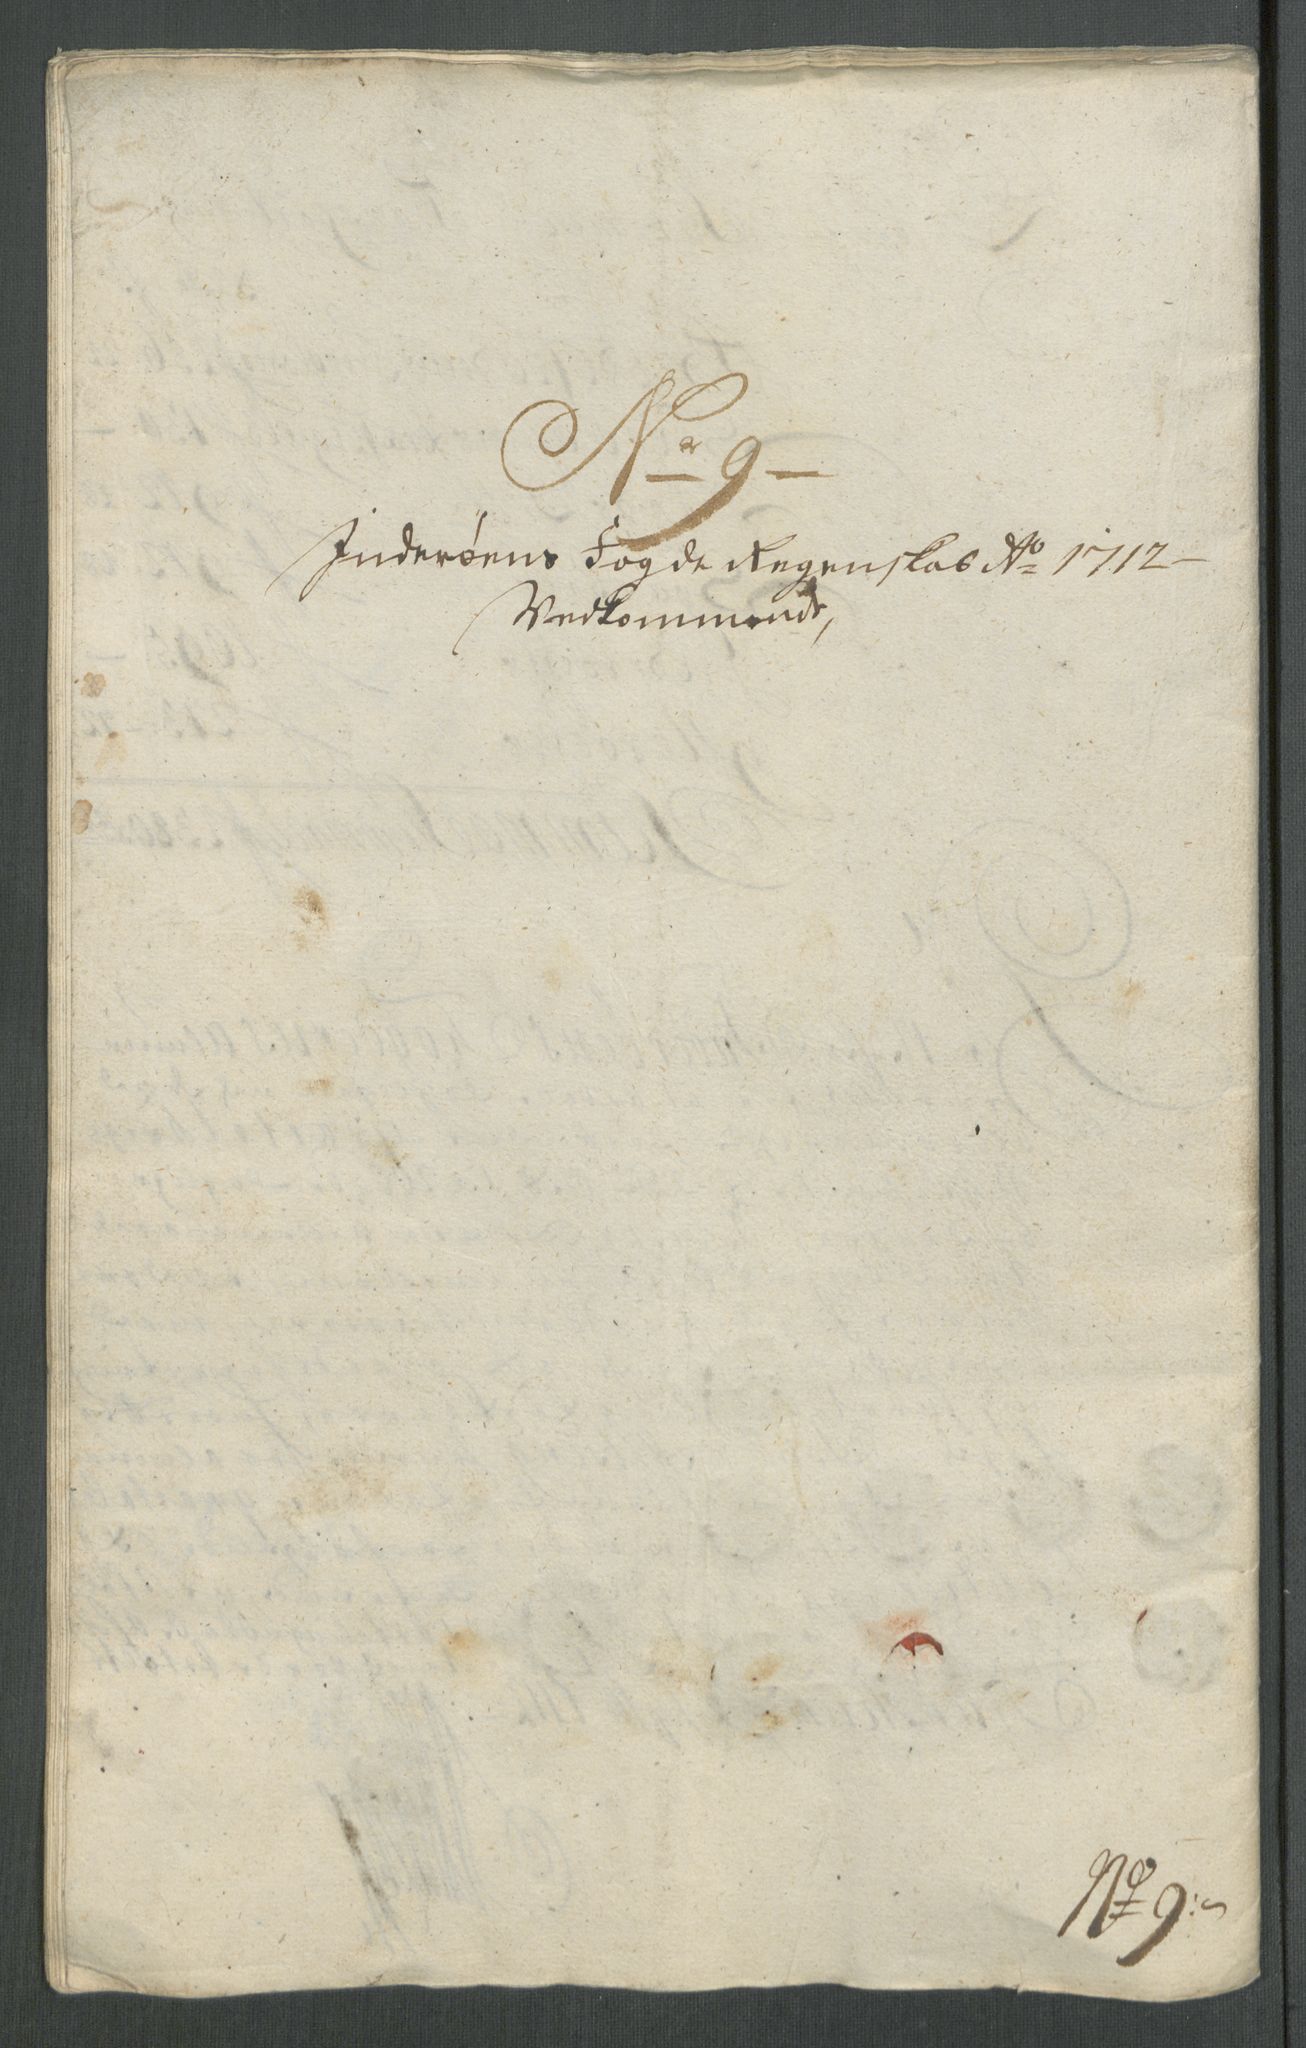 Nr 9
Inderøens Fogde Regenskab Ao 1712
Vedkommende,
No 9: